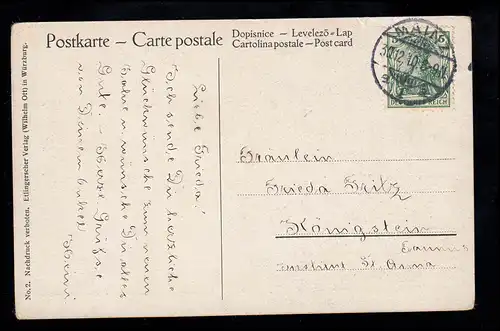 Postkarte – Carte postale
Dopisnice – Levelező-Lap
Cartolina postale – Post card
MAINZ
30.12.10.
DEUTSCHES REICH
No. 2. Nachdruck verboten. Etlingerscher Verlag (Wilhelm Ott) in Würzburg.
Liebe Frieda!
Ich sende Dir herzliche
Glückwünsche zum neuen
Jahre u. wünsche Dir alles
Gute. – Herzl. Grüsse
von Deinem Onkel
Heini
Fräulein
Frieda Fritz
Königstein
Taunus
Institut St. Anna